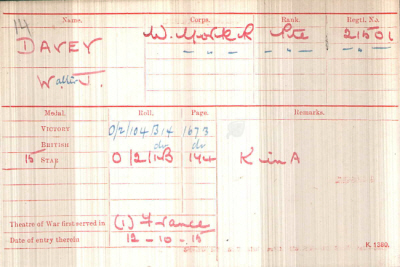 14
Name. Corps. Rank. Regtl. No.
DAVEY W. York R Pte 21501
Walter J. " " " "
Medal. Roll. Page. Remarks.
VICTORY O/2/104 B14 1673
BRITISH do do
15 STAR O/2/1B 144 K in A
Theatre of War first served in (1) France
Date of entry therein 12-10-15
K. 1380.